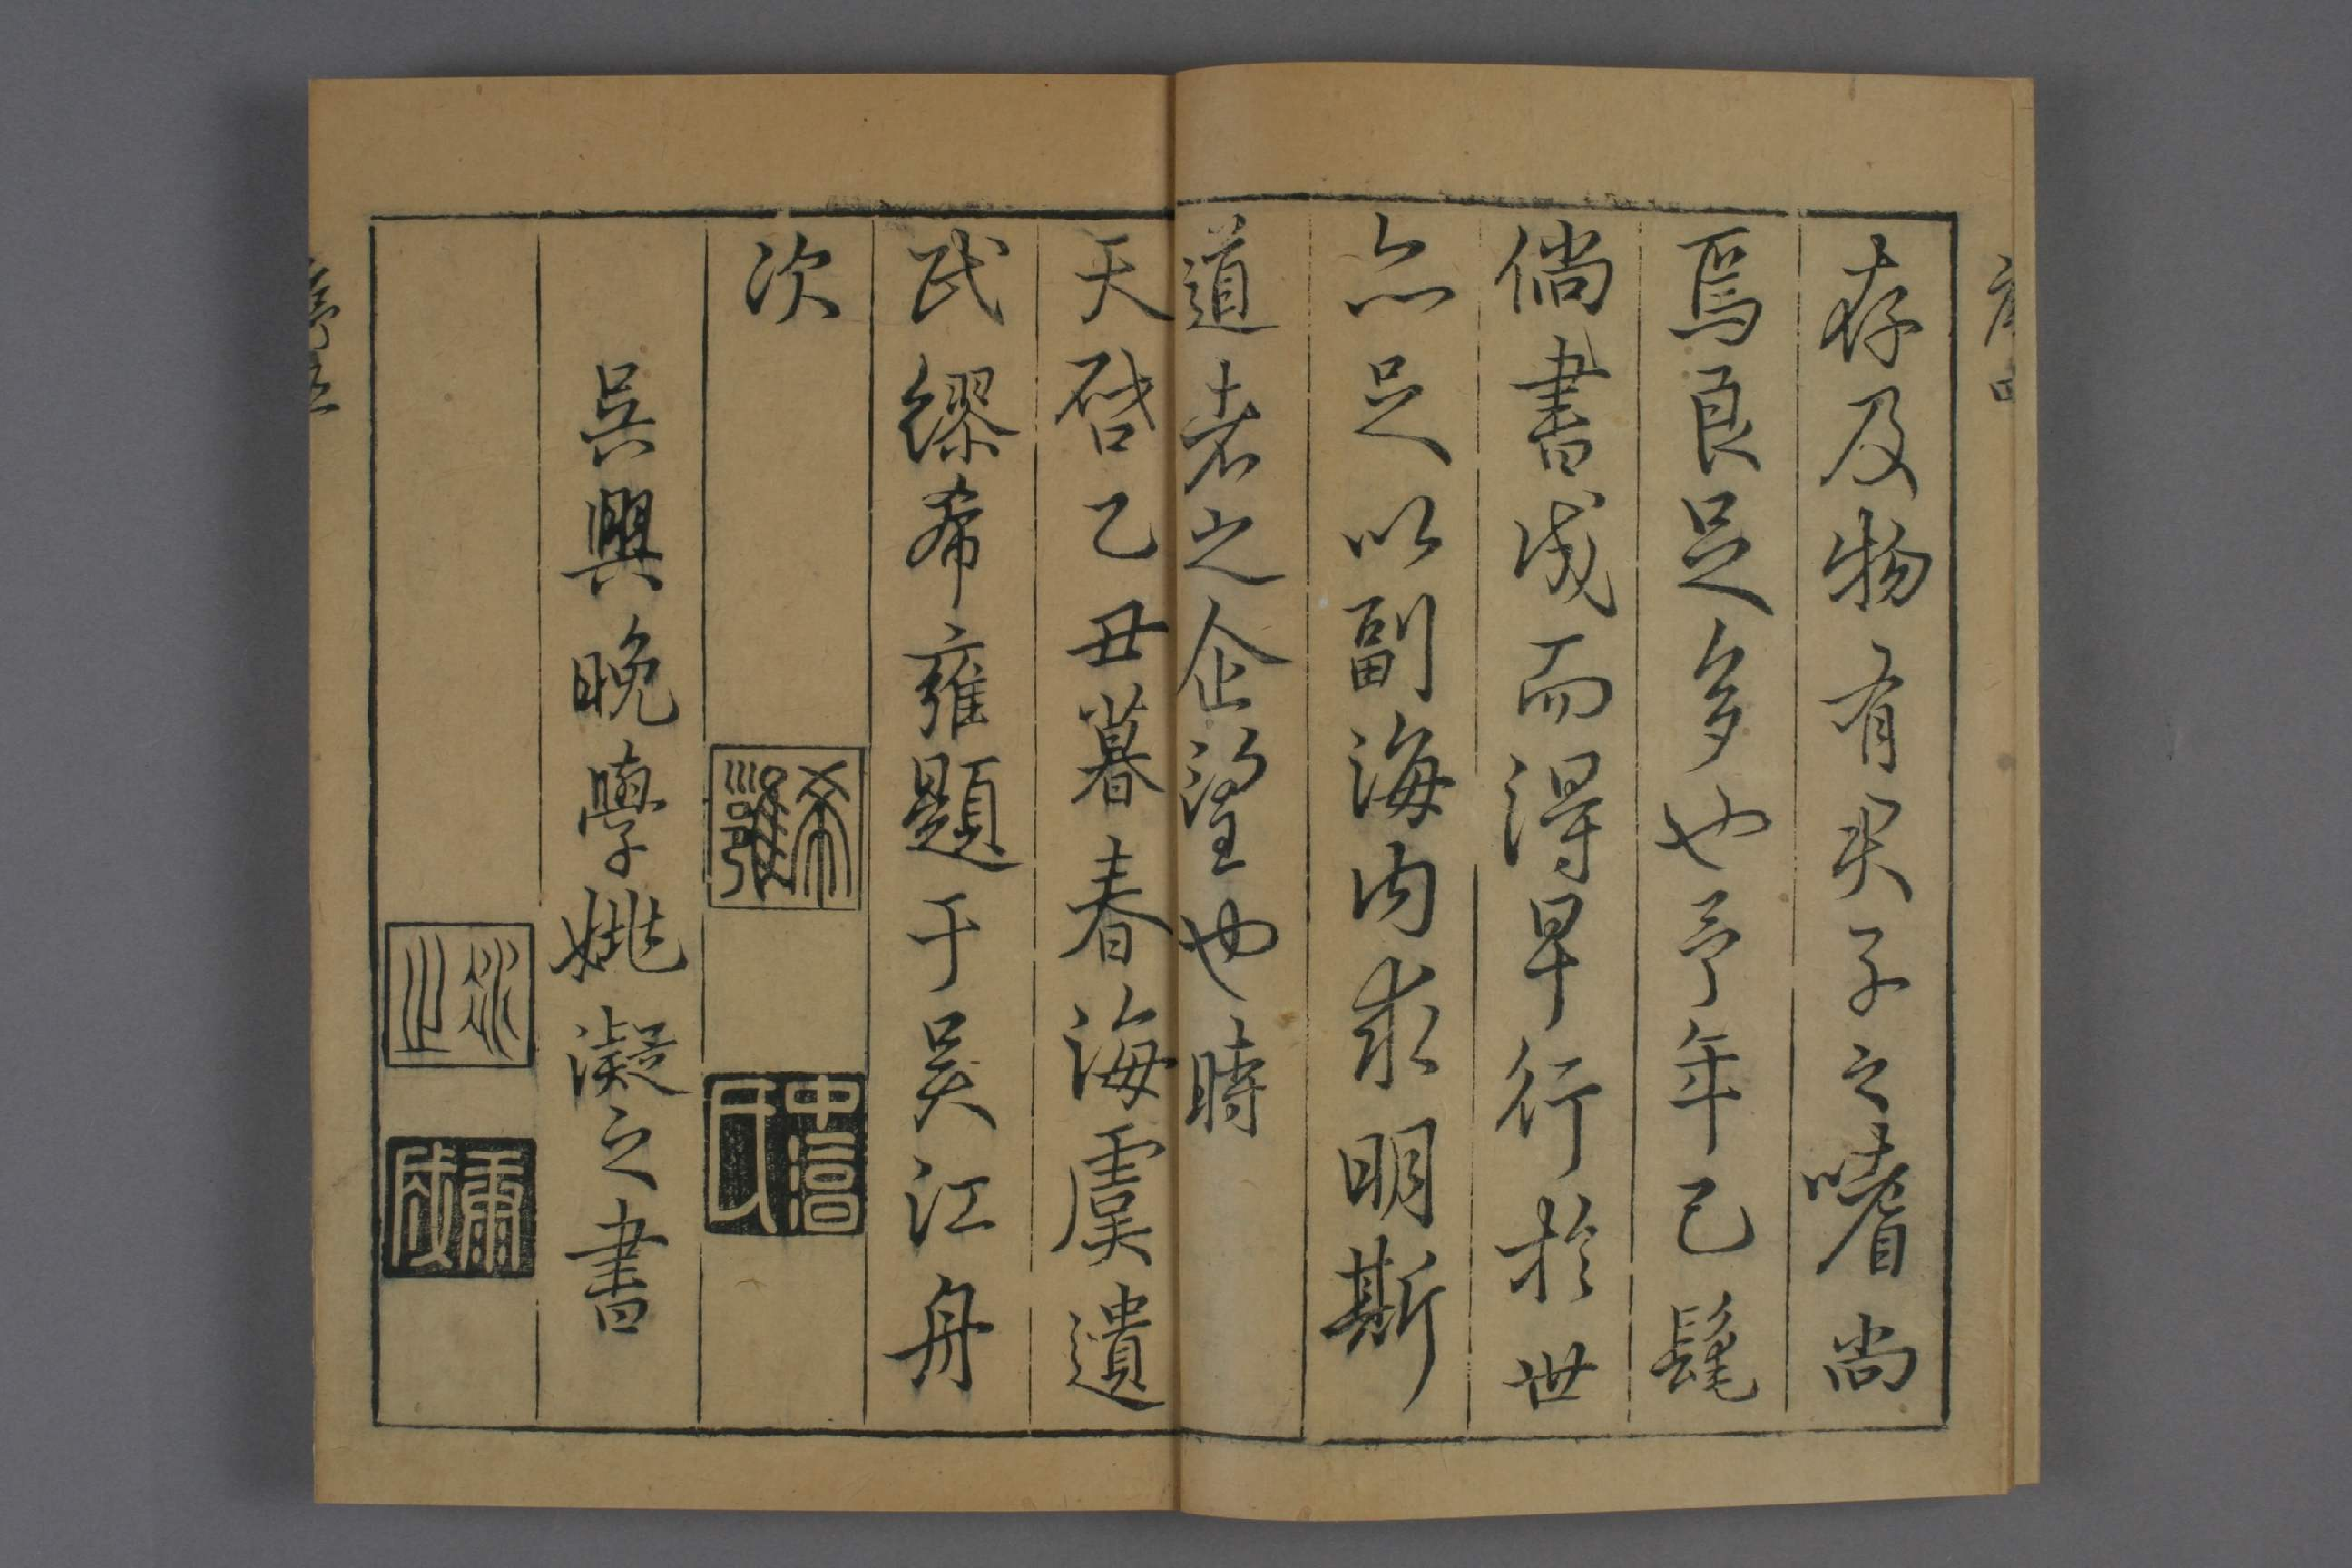 序四
存及物有君子之嗜尚
焉良足多也予年已髦
倘書成而得早行於世
亦足以副海内求明斯
道者之企望也時
天啓乙丑暮春海虞遺
民繆希雍題于吳江舟
次
希雍
中淳氏
吳興晚學姚凝之書
冰止
序五